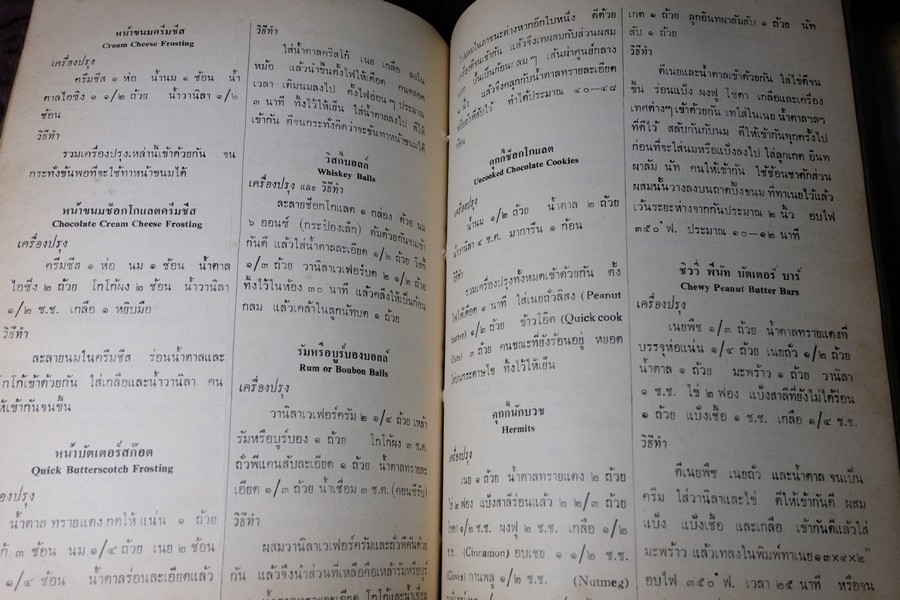 หน้าขนมครีมชีส
Cream Cheese Frosting
เครื่องปรุง
ครีมชีส ๑ ห่อ น้ำนม ๑ ช้อน น้ำ
ตาลไอซิ่ง ๑ ๑/๒ ถ้วย น้ำวานิลา ๑/๒
ช้อน
วิธีทำ
รวมเครื่องปรุงเหล่านี้เข้าด้วยกัน จน
กระทั่งข้นพอที่จะใช้ทาหน้าขนมได้
หน้าขนมช็อกโกแลตครีมชีส
Chocolate Cream Cheese Frosting
เครื่องปรุง
ครีมชีส ๑ ห่อ นม ๑ ช้อน น้ำตาล
ไอซิ่ง ๒ ถ้วย โกโก้ผง ๒ ช้อน น้ำวานิลา
๑/๒ ช.ช. เกลือ ๑ หยิบมือ
วิธีทำ
ละลายนมในครีมชีส ร่อนน้ำตาลและ
โกโก้เข้าด้วยกัน ใส่เกลือและน้ำวานิลา คน
ให้เข้ากันจนข้น
หน้าบัตเตอร์สก๊อต
Quick Butterscotch Frosting
น้ำตาล ทรายแดง กดให้ แน่น ๑ ถ้วย
๓ ช้อน นม ๑/๔ ถ้วย เนย ๒ ช้อน
๑/๔ ช้อน น้ำตาลร่อนละเอียดแล้ว
วิธีทำ
ใส่น้ำตาลคริสโก้ เนย เกลือ ลงใน
หม้อ แล้วนำขึ้นตั้งไฟให้เดือด คนตลอด
เวลา เติมนมลงไป ตั้งไฟอ่อนๆ ประมาณ
๓ นาที ทิ้งไว้ให้เย็น ใส่น้ำตาลลงไป ตีให้
เข้ากัน ตีจนกระทั่งคิดว่าจะข้นทาหน้าขนมได้
วิสกี้บอลล์
Whiskey Balls
เครื่องปรุง และ วิธีทำ
ละลายช็อกโกแลต ๑ กล่อง ด้วย นม
๖ ออนซ์ (กระป๋องเล็ก) ต้มด้วยกันจนเข้า
กันดี แล้วใส่น้ำตาลละเอียด ๑/๒ ถ้วย วิสกี้
๑/๓ ถ้วย วานิลาเวเฟอร์บด ๒ ๑/๒ ถ้วย
ทิ้งไว้ในห้อง ๓๐ นาที แล้วคลึงให้เป็นก้อน
กลม แล้วเคล้าในลูกนัทบด ๑ ถ้วย
รัมหรือบูร์บองบอลล์
Rum or Boubon Balls
เครื่องปรุง
วานิลาเวเฟอร์ครัม ๒ ๑/๔ ถ้วย เหล้า
รัมหรือบูร์บอง ๑ ถ้วย โกโก้ผง ๓ ช.ค.
ถั่วพีแคนสับละเอียด ๑ ถ้วย น้ำตาลทรายละ
เอียด ๑/๓ ถ้วย น้ำเชื่อม ๓ ช.ค. (คอนซีรับ)
วิธีทำ
ผสมวานิลาเวเฟอร์ครัมและถั่วพีคันด้วย
กัน แล้วจึงนำส่วนที่เหลือคือเหล้ารัมหรือบูร์
ใบหนึ่ง ตีด้วย
แล้วจึงเทผสมกับส่วนผสม
เป็นก้อนกลมๆ เส้นผ่าศูนย์กลาง
๑ นิ้ว แล้วจึงคลุกกับน้ำตาลทรายละเอียด
ทำได้ประมาณ ๔๐–๔๘
คุกกี้ช็อกโกแลต
Uncooked Chocolate Cookies
เครื่องปรุง
น้ำนม ๑/๒ ถ้วย น้ำตาล ๒ ถ้วย
น้ำวานิลา ๑ ช.ค. มาการีน ๑ ก้อน
วิธีทำ
รวมเครื่องปรุงทั้งหมดเข้าด้วยกัน ตั้ง
ไฟให้เดือด ๑ นาที ใส่เนยถั่วลิสง (Peanut
butter) ๑/๒ ถ้วย ข้าวโอ๊ต (Quick cook
Oats) ๓ ถ้วย คนขณะที่ยังร้อนอยู่ หยอด
ใส่บนกระดาษไข ทิ้งไว้ให้เย็น
คุกกี้นักบวช
Hermits
เครื่องปรุง
เนย ๑ ถ้วย น้ำตาลทรายแดง ๒ ถ้วย
ไข่ ๒ ฟอง แป้งสาลีร่อนแล้ว ๒ ๒/๓ ถ้วย
โซดา ๑/๒ ช.ช. ผงฟู ๒ ช.ช. เกลือ ๑/๒
ช.ช. (Cinnamon) อบเชย ๑ ๑/๒ ช.ช.
(Cloves) กานพลู ๑/๒ ช.ช. (Nutmeg)
เกต ๑ ถ้วย ลูกอินทผาลัมสับ ๑ ถ้วย นัท
สับ ๑ ถ้วย
วิธีทำ
ตีเนยและน้ำตาลเข้าด้วยกัน ใส่ไข่ตีจน
ขึ้น ร่อนแป้ง ผงฟู โซดา เกลือและเครื่อง
เทศต่างๆ เข้าด้วยกัน เทใส่ในเนย น้ำตาล ฯลฯ
ที่ตีไว้ สลับกันกับนม ตีให้เข้ากันทุกครั้งไป
ก่อนที่จะใส่นมหรือแป้งลงไป ใส่ลูกเกต อินท
ผาลัม นัท คนให้เข้ากัน ใช้ช้อนชาตักส่วน
ผสมนั้นวางลงบนถาดปิ้งขนม ที่ทาเนยไว้แล้ว
เว้นระยะห่างจากกันประมาณ ๒ นิ้ว อบไฟ
๓๕๐° ฟ. ประมาณ ๑๐–๑๒ นาที
ชิววี่ พีนัท บัตเตอร์ บาร์
Chewy Peanut Butter Bars
เครื่องปรุง
เนยพืช ๑/๓ ถ้วย น้ำตาลทรายแดงที่
บรรจุห่อแน่น ๑/๔ ถ้วย เนยถั่ว ๑/๒ ถ้วย
น้ำตาล ๑ ถ้วย มะพร้าว ๑ ถ้วย วานิลา
๑ ช.ช. ไข่ ๒ ฟอง แป้งสาลีที่ยังไม่ได้ร่อน
๑ ถ้วย แป้งเชื้อ ๑ ช.ช. เกลือ ๑/๔ ช.ช.
วิธีทำ
ตีเนยพืช เนยถั่ว และน้ำตาล จนเป็น
ครีม ใส่วานิลาและไข่ ตีให้เข้ากันดี ผสม
แป้ง แป้งเชื้อ และเกลือ เข้ากันดีแล้วใส่
มะพร้าว แล้วเทลงในพิมพ์ทาเนย ๑๓×๙×๒"
อบไฟ ๓๕๐° ฟ. เวลา ๒๕ นาที หรือจน